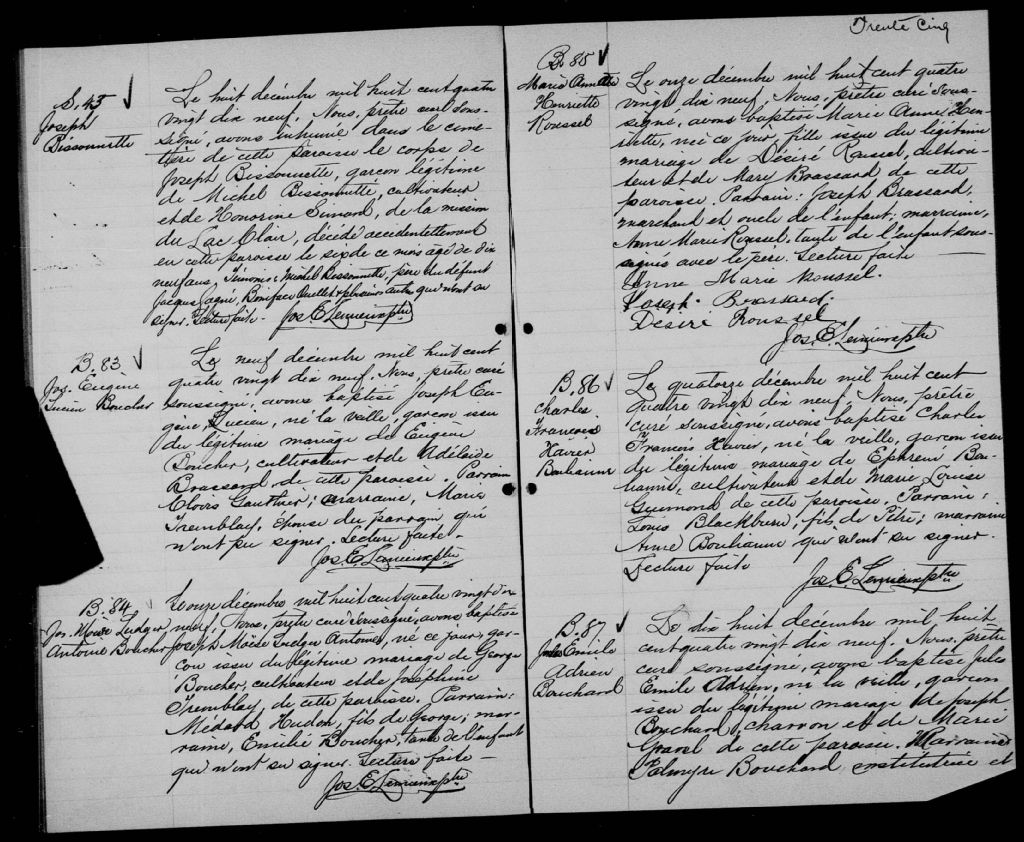 S. 43
Joseph
Bissonnette
Le huit décembre mil huit cent quatre
vingt dix neuf, Nous, prêtre curé sous-
signé, avons inhumé dans le cime-
tière de cette paroisse le corps de
Joseph Bissonnette, garçon légitime
de Michel Bissonnette, cultivateur
et de Honorine Simard, de la mission
du Lac Clair, décédé accidentellement
en cette paroisse le six de ce mois âgé de dix
neuf ans. Témoins: Michel Bissonnette, père du défunt
Jacques Gagné, Boniface Ouellet & plusieurs autres qui n'ont su
signer. Lecture faite.
Jos. E. Lemieux ptre
B. 83
Jos. Eugène
Lucien Boucher
Le neuf décembre mil huit cent
quatre vingt dix neuf, Nous, prêtre curé
soussigné, avons baptisé Joseph Eu-
gène, Lucien, né la veille, garçon issu
du légitime mariage de Eugène
Boucher, cultivateur et de Adélaide
Brassard de cette paroisse. Parrain
Clovis Gauthier; marraine, Marie
Tremblay, épouse du parrain qui
n'ont pu signer. Lecture faite.
Jos. E. Lemieux ptre
B. 84
Jos. Moïse Ludger
Antoine Boucher
Le onze décembre mil huit cent quatre vingt dix
neuf, Nous, prêtre curé soussigné, avons baptisé
Joseph Moïse Ludger Antoine, né ce jour, gar-
çon issu du légitime mariage de George
Boucher, cultivateur et de Joséphine
Tremblay, de cette paroisse. Parrain:
Médard Hudon, fils de George; mar-
raine, Emilie Boucher, tante de l'enfant
qui n'ont su signer. Lecture faite —
Jos. E. Lemieux ptre
Trente Cinq
B. 85
Marie Annette
Henriette
Roussel
Le onze décembre mil huit cent quatre
vingt dix neuf. Nous, prêtre curé sous-
signé, avons baptisé Marie Anne Hen-
riette, née ce jour, fille issue du légitime
mariage de Désiré Roussel, cultiva-
teur et de Marie Brassard de cette
paroisse. Parrain: Joseph Brassard,
marchand et oncle de l'enfant; marraine,
Anne Marie Roussel, tante de l'enfant sous-
signés avec le père. Lecture faite —
Anne Marie Roussel.
Joseph Brassard.
Désiré Roussel
Jos. E. Lemieux ptre
B. 86
Charles
François
Xavier
Bouhanne
Le quatorze décembre mil huit cent
quatre vingt dix neuf. Nous, prêtre
curé soussigné, avons baptisé Charles
François Xavier, né la veille, garçon issu
du légitime mariage de Ephrem Bou-
hanne, cultivateur et de Marie Louise
Guimond de cette paroisse. Parrain:
Louis Blackburn, fils de Pitre; marraine
Anne Bouhanne qui n'ont su signer.
Lecture faite
Jos. E. Lemieux ptre
B. 87
Jules Emile
Adrien
Bouchard
Le dix huit décembre mil huit
cent quatre vingt dix neuf. Nous, prêtre
curé soussigné, avons baptisé Jules
Emile Adrien, né la veille, garçon
issu du légitime mariage de Joseph
Bouchard, charron et de Marie
Gravel de cette paroisse. Marraine
Edmyre Bouchard institutrice et